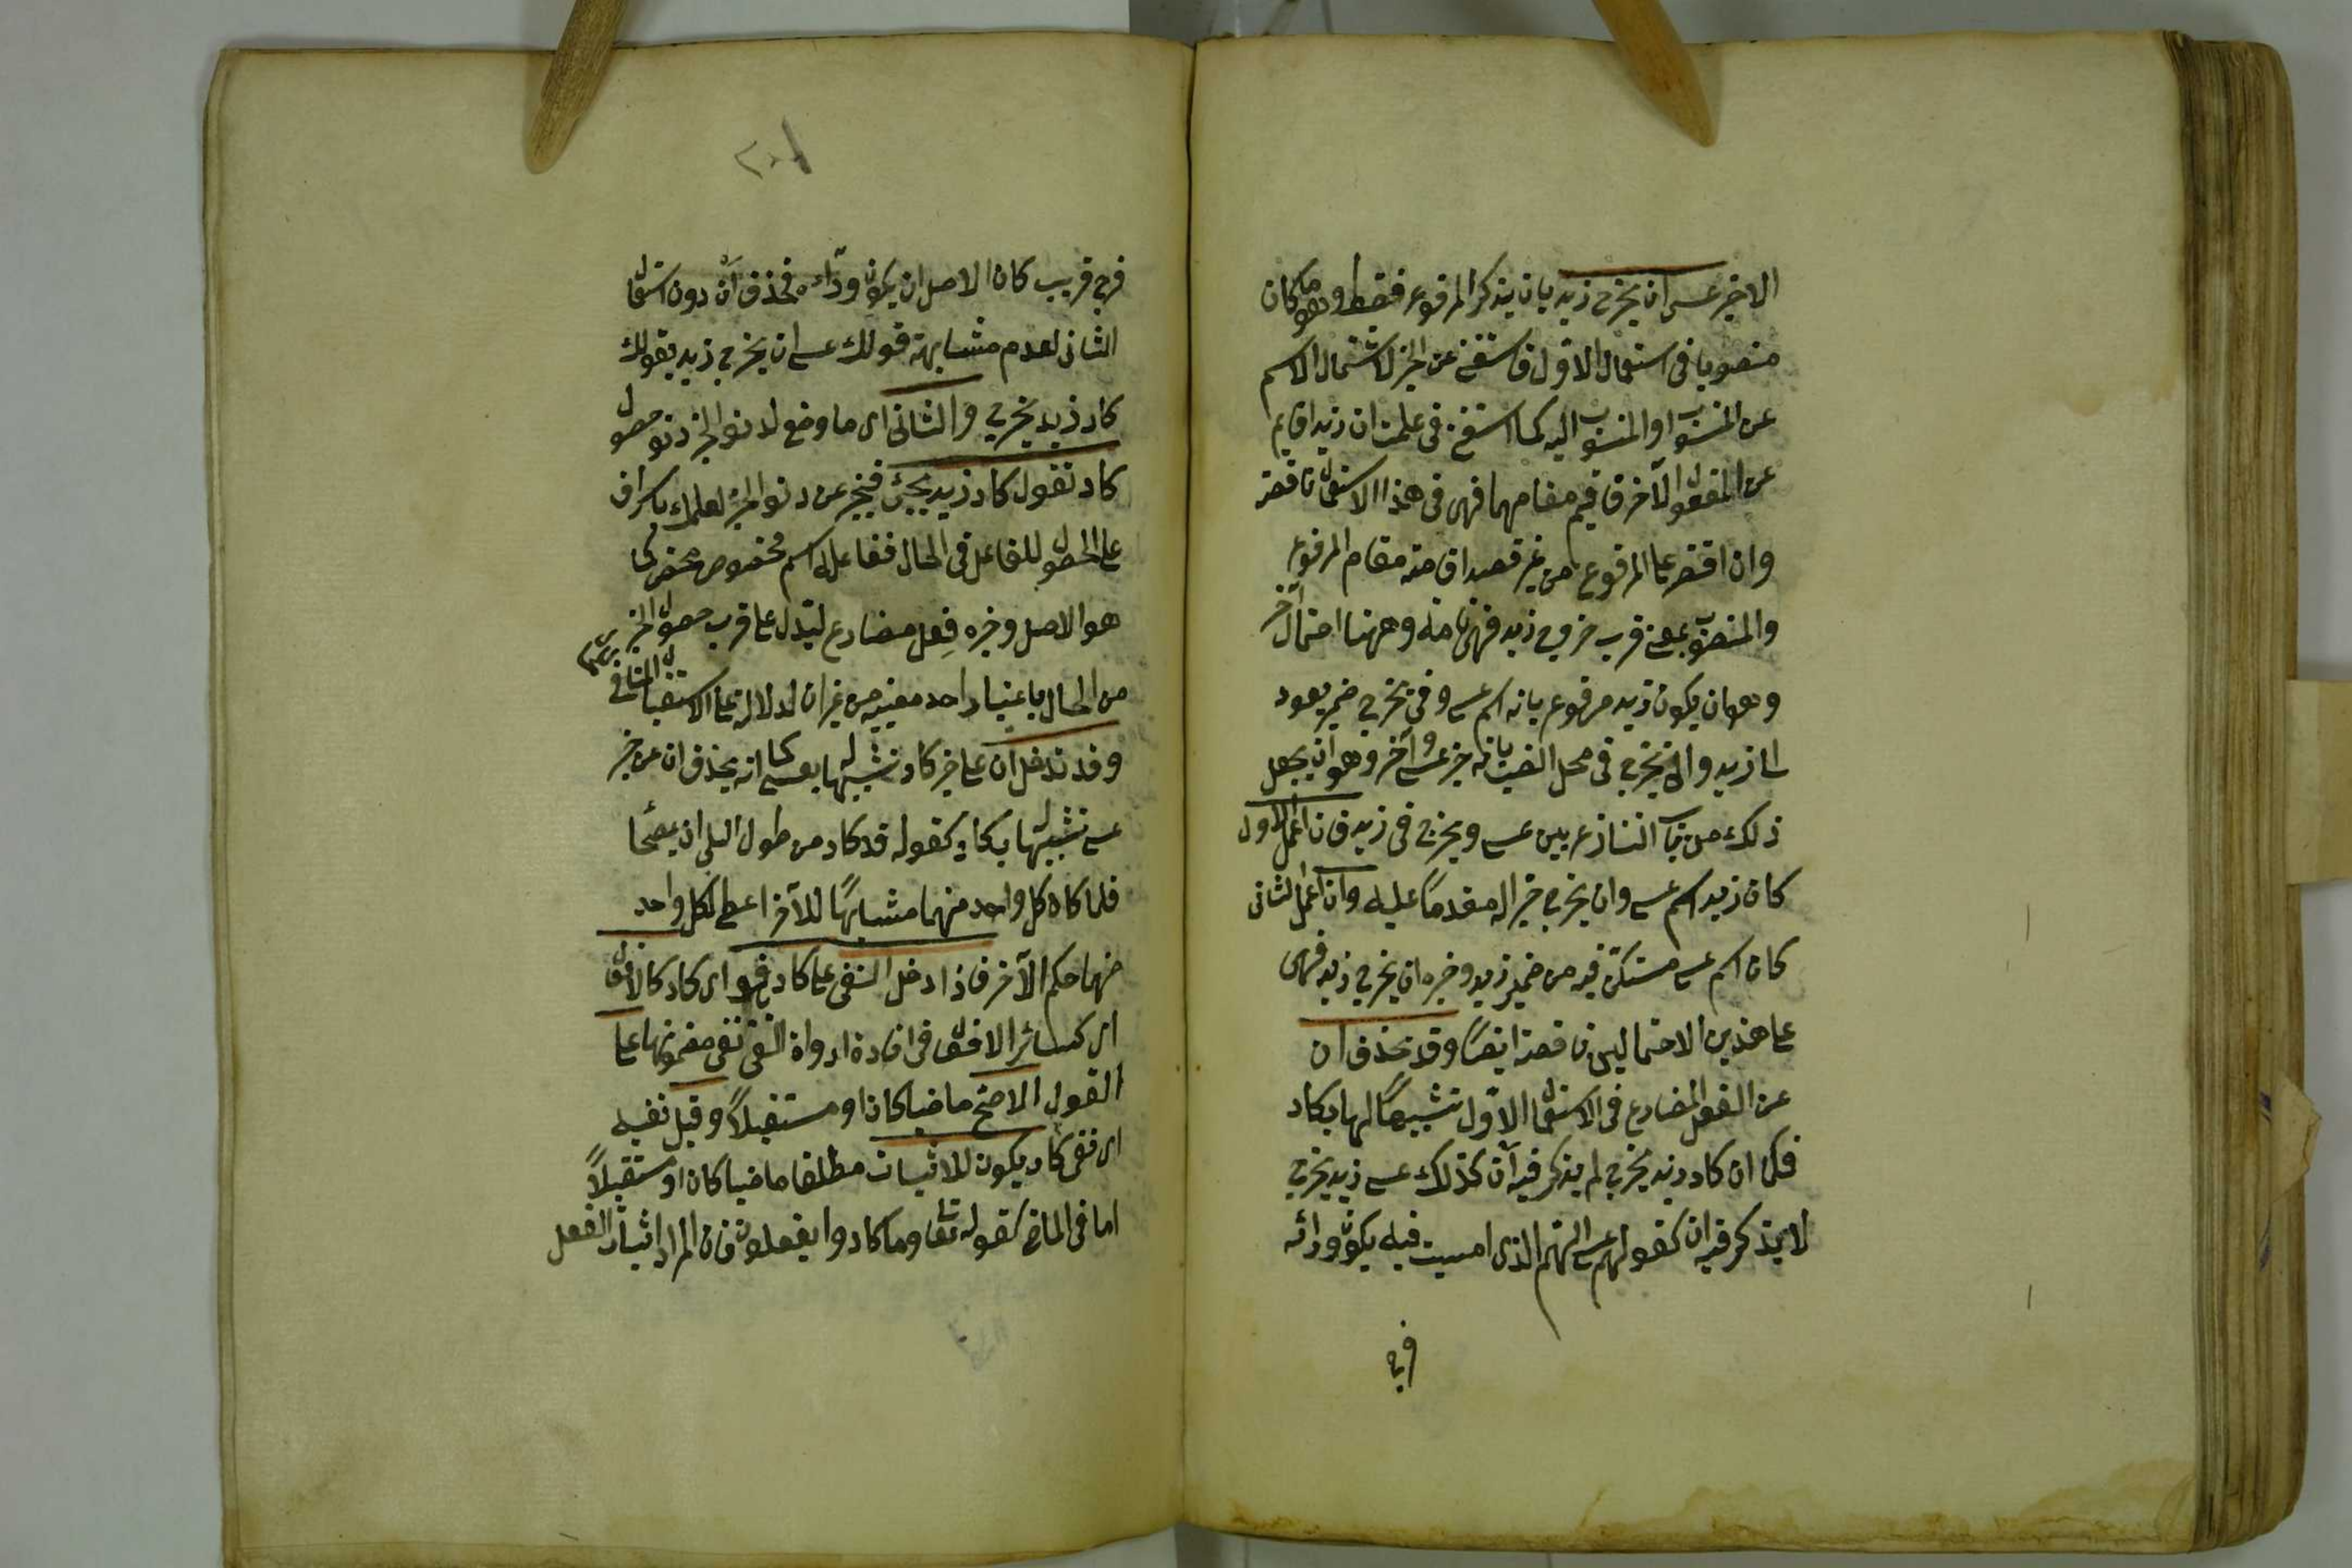 الاخير عسى ان يخرج زيد بان يذكر المرفوع فقط وهو ما كان
منصوبا فى استعمال الاول فاستغنى عن الخبر لاشتمال الاسم
عن المنسوب او المنسوب اليه كما استغنى فى علمت ان زيدا قايم
عن المفعول الآخر فاقيم مقامهما فهى فى هذا الاستعمال ناقصة
وان اقتصر على المرفوع من غير قصد اقامته مقام المرفوع
والمنصوب بمعنى قرب خروج زيد فهى تامة وههنا احتمال آخر
وهو ان يكون زيد مرفوع بانه اسم عسى وفى يخرج ضمير يعود
الى زيد وان يخرج فى محل النصب بانه خبر عسى وآخر وهو ان يجعل
ذلك من باب التنازع بين عسى ويخرج فى زيد فان اعمل الاول
كان زيد اسم عسى وان يخرج خبرا له مقدما عليه وان اعمل الثانى
كان اسم عسى مستكن فيه من ضمير زيد وخبره ان يخرج زيد فهى
على هذين الاحتمالين ناقصة ايضا وقد تحذف ان
عن الفعل المضارع فى الاستعمال الاول تشبيها لها بكاد
فكما ان كاد زيد يخرج لم يذكر فيه ان كذلك عسى زيد يخرج
لا يذكر فيه ان كقولهم عسى الهم الذى امسيت فيه يكون ورائه
فرج
١٠٢
فرج قريب كان الاصل ان يكون وراءه فحذف ان دون استعمال
الثانى لعدم مشابهة قولك عسى ان يخرج زيد بقولك
كاد زيد يخرج والثانى اى ما وضع لدنو الخبر دنو حصول
كاد تقول كاد زيد يجئ فيخبر عن دنو الخبر لعلمك باشرافه
على الحصول للفاعل فى الحال ففاعله اسم مخصوص محض كما
هو الاصل وخبره فعل مضارع ليدل على قرب حصول الخبر
من الحال باعتبار احد معنييه من غير ان لدلالة على الاستقبال المنافى
وقد تدخل ان على خبر كاد تشبيها له بعسى كما انه يحذف ان عن خبر
عسى تشبيها له بكاد كقوله قد كاد من طول البلى ان يمصحا
فلما كان كل واحد منهما مشابها للآخر اعطى لكل واحد
منهما حكم الآخر فاذا دخل النفى على كاد فهو اى كاد كالافعال
اى كسائر الافعال فى افادة ادواة النفى نفى مضمونها على
القول الاصح ماضيا كان او مستقبلا وقيل نفيه
اى نفى كاد يكون للاثبات مطلقا ماضيا كان او مستقبلا
اما فى الماضى كقوله تعالى وما كادوا يفعلون فان المراد اثبات الفعل